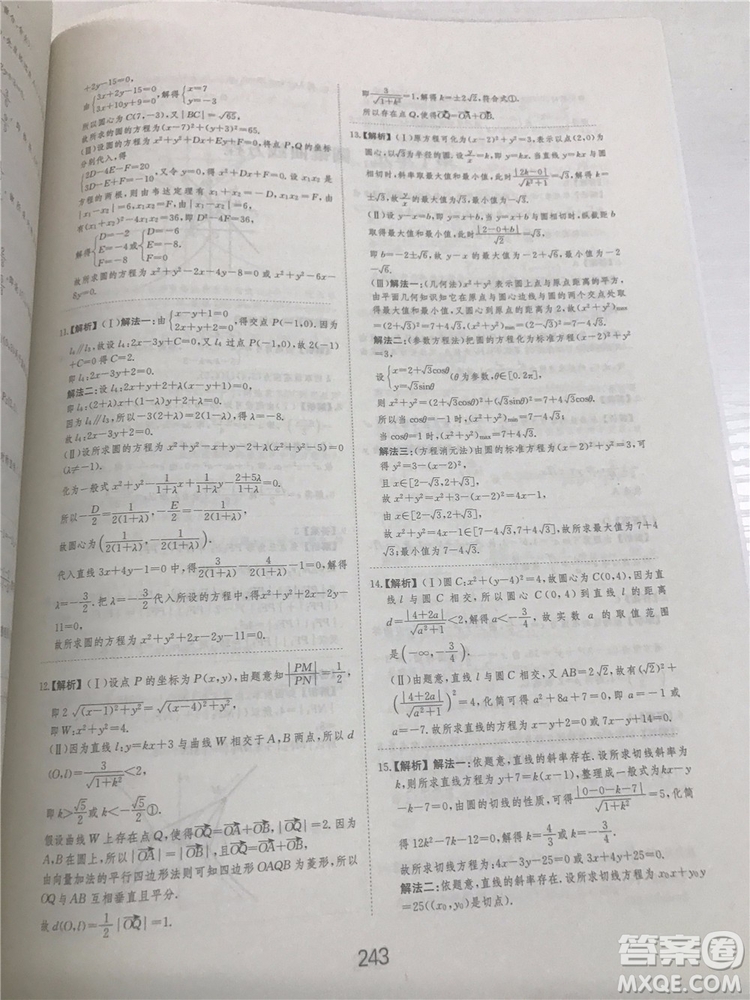 即{x+2y-15=0, 3x+10y+9=0, 解得{x=7, y=-3
所以C(7,-3),又|BC|=√65,
故所求的圆的方程为(x-7)²+(y+3)²=65.
(Ⅲ)设圆的方程为x²+y²+Dx+Ey+F=0,将点P,Q的坐标
分别代入,得
{2D-4E-F=20
3D-E+F=-10
又令y=0,得x²+Dx+F=0,
设x₁,x₂是方程的两根,由韦达定理有x₁+x₂=-D,x₁x₂=F,由
|x₁-x₂|=6有D²-4F=36,
解得{D=-2 E=-4 F=-8或{D=-6 E=-8 F=0.
故所求圆的方程为x²+y²-2x-4y-8=0或x²+y²-6x-
8y=0.
11.【解析】(Ⅰ)解法一:由{x-y+1=0 2x+y+2=0,得交点P(-1,0).因为
l₄∥l₃.设l₄:2x-3y+C=0,又l₄过点P(-1,0).所以-2+C=
0得C=2.
即l₄:2x-3y+2=0.
解法二:设l₄:2x+y+2+λ(x-y+1)=0,
即l₄:(2+λ)x+(1-λ)y+2+λ=0.
因为l₄∥l₃,所以-3(2+λ)=2(1-λ)得λ=-8.
得l₄:2x-3y+2=0.
(Ⅱ)设所求圆的方程为x²+y²-x+2y-2+λ(x²+y²-5)=0,
(λ≠-1).
化为一般式x²+y²-1/(1+λ)x+2/(1+λ)y-(2+5λ)/(1+λ)=0.
所以-D/2=1/(2(1+λ)),-E/2=-1/(1+λ),
故圆心为(1/(2(1+λ)),-1/(1+λ)),
代入直线3x+4y-1=0中,得
得λ=-3/2.将λ=-3/2代入所设的方程得x²+y²+2x-2y-
11=0.
故所求圆的方程为x²+y²+2x-2y-11=0.
12.【解析】(Ⅰ)设点P的坐标为P(x,y),由题意知|PM|/|PN|=1/2,
即2√((x-1)²+y²)=√((x-4)²+y²),
即W:x²+y²=4.
(Ⅱ)因为直线l:y=kx+3与曲线W交于A,B两点,所以d
(O,l)=3/√(1+k²)<2,
即k>√5/2或k<-√5/2①.
假设曲线W上存在点Q,使得OQ=OA+OB,因为
A,B在圆上,所以|OA|=|OB|,且OQ=OA+OB,
由向量加法的平行四边形法则可知四边形OAQB为菱形,所以
OQ与AB互相垂直且平分.
故d(O,l)=1/2|OQ|=1.
即3/√(1+k²)=1.解得k=±2√2,符合式①.
所以存在点Q,使得OQ=OA+OB.
13.【解析】(Ⅰ)原方程可化为(x-2)²+y²=3,表示以点(2,0)为
圆心,√3为半径的圆.设y/x=k,即y=kx,当直线y=kx与圆相
切时,斜率取最大值和最小值,此时|2k-0|/√(k²+1)=√3.
解得k=±√3.故y/x的最大值为√3,最小值为-√3.
(Ⅱ)设y-x=b,即y=x+b,当y=x+b与圆相切时,纵截距b
取得最大值和最小值,此时|2-0+b|/√2=√3.
即b=-2±√6.故y-x的最大值为-2+√6,最小值为-2-√6.
(Ⅲ)解法一:(几何法)x²+y²表示圆上点与原点距离的平方,
由平面几何知识知它在原点与圆心连线与圆的两个交点处取
得最大值和最小值,又圆心到原点的距离为2,故(x²+y²)max
=(2+√3)²=7+4√3,(x²+y²)min=(2-√3)²=7-4√3.
解法二:(参数方程法)把圆的方程化为标准方程(x-2)²+y²
=3,
设{x=2+√3cosθ y=√3sinθ(θ为参数,θ∈[0,2π],
则x²+y²=(2+√3cosθ)²+(√3sinθ)²=7+4√3cosθ.
所以当cosθ=-1时,(x²+y²)min=7-4√3,
当cosθ=1时,(x²+y²)max=7+4√3.
解法三:(方程消元法)由圆的标准方程为(x-2)²+y²=3,
可得y²=3-(x-2)²,
且x∈[2-√3,2+√3],
故x²+y²=x²+3-(x-2)²=4x-1.
由x∈[2-√3,2+√3],
故x²+y²=4x-1∈[7-4√3,7+4√3].所以最大值为7+4
√3;最小值为7-4√3.
14.【解析】(Ⅰ)圆C:x²+(y-4)²=4,故圆心为C(0,4),因为直
线l与圆C相交,所以圆心C(0,4)到直线的距离
d=|4+2a|/√(a²+1)<2,解得a<-3/4,故实数a的取值范围
是(-∞,-3/4).
(Ⅱ)由题意,直线l与圆C相交,又AB=2√2,故(√2)²+
(|4+2a|/√(a²+1))²=4,化简可得a²+8a+7=0,解得a=-1或
a=-7.故所求直线的方程为x-y+2=0或7x-y+14=0.
15.【解析】解法一:依题意,直线的斜率存在.设所求切线斜率为
k,则所求直线方程为y+7=k(x-1),整理成一般式为kx-y-
k-7=0,由圆的切线的性质,可得|0-0-k-7|/√(1+k²)=5,化简
得12k²-7k-12=0,解得k=4/3或k=-3/4.
故所求切线方程为:4x-3y-25=0或3x+4y+25=0.
解法二:依题意,直线的斜率存在.设所求切线方程为x₀x+y₀y
=25((x₀,y₀)是切点).
243
答案圈
MXQE.COM